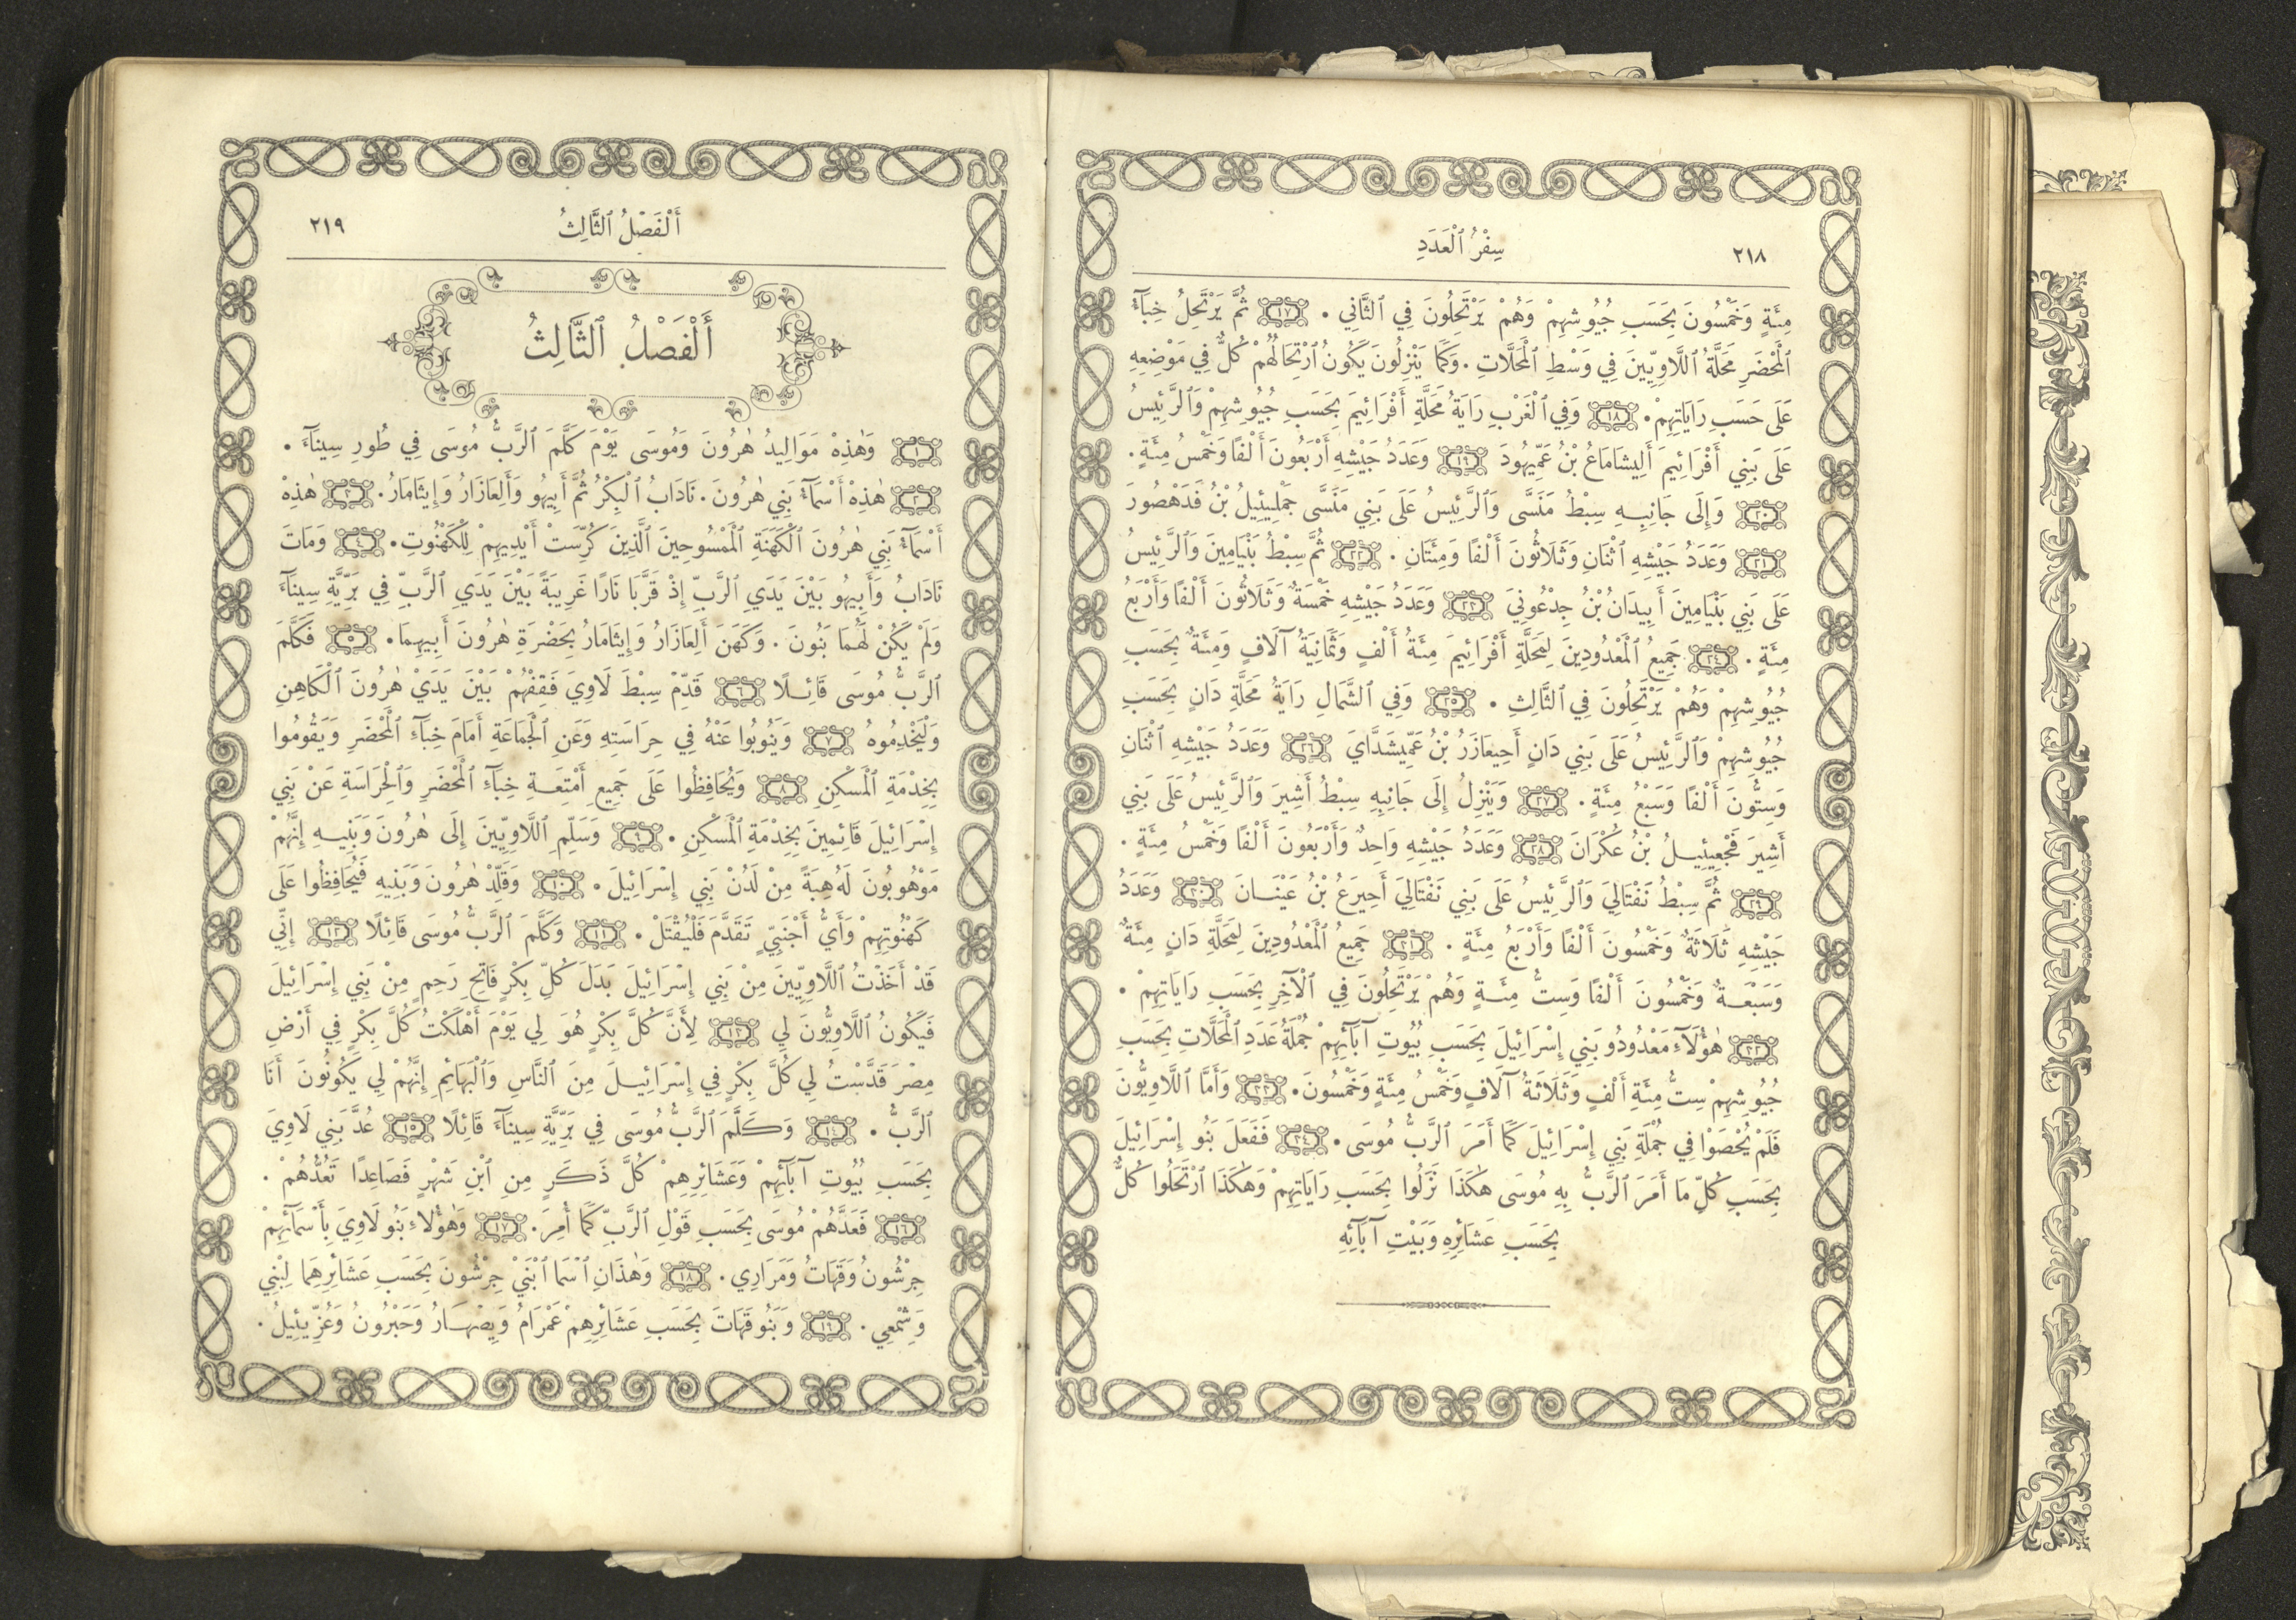 ٢١٨
سِفْرُ ٱلْعَدَدِ
مِئَةٍ وَخَمْسُونَ بِحَسَبِ جُيُوشِهِمْ وَهُمْ يَرْتَحِلُونَ فِي ٱلثَّانِي . ١٧ ثُمَّ يَرْتَحِلُ خِبَآءُ
ٱلْمَحْضَرِ مَحَلَّةُ ٱللَّاوِيِّينَ فِي وَسْطِ ٱلْمَحَلَّاتِ . وَكَمَا يَنْزِلُونَ يَكُونُ ٱرْتِحَالُهُمْ كُلٌّ فِي مَوْضِعِهِ
عَلَى حَسَبِ رَايَاتِهِمْ . ١٨ وَفِي ٱلْغَرْبِ رَايَةُ مَحَلَّةِ أَفْرَائِيمَ بِحَسَبِ جُيُوشِهِمْ وَٱلرَّئِيسُ
عَلَى بَنِي أَفْرَائِيمَ أَلِيشَامَاعُ بْنُ عَمِّيهُودَ ١٩ وَعَدَدُ جَيْشِهِ أَرْبَعُونَ أَلْفًا وَخَمْسُ مِئَةٍ .
٢٠ وَإِلَى جَانِبِهِ سِبْطُ مَنَسَّى وَٱلرَّئِيسُ عَلَى بَنِي مَنَسَّى جَمْلِيئِيلُ بْنُ فَدَهْصُورَ
٢١ وَعَدَدُ جَيْشِهِ ٱثْنَانِ وَثَلَاثُونَ أَلْفًا وَمِئَتَانِ . ٢٢ ثُمَّ سِبْطُ بَنْيَامِينَ وَٱلرَّئِيسُ
عَلَى بَنِي بَنْيَامِينَ أَبِيدَانُ بْنُ جِدْعُونِيَ ٢٣ وَعَدَدُ جَيْشِهِ خَمْسَةٌ وَثَلَاثُونَ أَلْفًا وَأَرْبَعُ
مِئَةٍ . ٢٤ جَمِيعُ ٱلْمَعْدُودِينَ لِمَحَلَّةِ أَفْرَائِيمَ مِئَةُ أَلْفٍ وَثَمَانِيَةُ آلَافٍ وَمِئَةٌ بِحَسَبِ
جُيُوشِهِمْ وَهُمْ يَرْتَحِلُونَ فِي ٱلثَّالِثِ . ٢٥ وَفِي ٱلشَّمَالِ رَايَةُ مَحَلَّةِ دَانٍ بِحَسَبِ
جُيُوشِهِمْ وَٱلرَّئِيسُ عَلَى بَنِي دَانٍ أَحِيعَازَرُ بْنُ عَمِّيشَدَّايَ ٢٦ وَعَدَدُ جَيْشِهِ ٱثْنَانِ
وَسِتُّونَ أَلْفًا وَسَبْعُ مِئَةٍ . ٢٧ وَيَنْزِلُ إِلَى جَانِبِهِ سِبْطُ أَشِيرَ وَٱلرَّئِيسُ عَلَى بَنِي
أَشِيرَ فَجْعِيئِيلُ بْنُ عُكْرَانَ ٢٨ وَعَدَدُ جَيْشِهِ وَاحِدٌ وَأَرْبَعُونَ أَلْفًا وَخَمْسُ مِئَةٍ .
٢٩ ثُمَّ سِبْطُ نَفْتَالِيَ وَٱلرَّئِيسُ عَلَى بَنِي نَفْتَالِيَ أَحِيرَعُ بْنُ عَيْنَانَ ٣٠ وَعَدَدُ
جَيْشِهِ ثَلَاثَةٌ وَخَمْسُونَ أَلْفًا وَأَرْبَعُ مِئَةٍ . ٣١ جَمِيعُ ٱلْمَعْدُودِينَ لِمَحَلَّةِ دَانٍ مِئَةٌ
وَسَبْعَةٌ وَخَمْسُونَ أَلْفًا وَسِتُّ مِئَةٍ وَهُمْ يَرْتَحِلُونَ فِي ٱلْآخِرِ بِحَسَبِ رَايَاتِهِمْ .
٣٢ هٰؤُلَآءِ مَعْدُودُو بَنِي إِسْرَائِيلَ بِحَسَبِ بُيُوتِ آبَآئِهِمْ جُمْلَةُ عَدَدِ ٱلْمَحَلَّاتِ بِحَسَبِ
جُيُوشِهِمْ سِتُّ مِئَةِ أَلْفٍ وَثَلَاثَةُ آلَافٍ وَخَمْسُ مِئَةٍ وَخَمْسُونَ . ٣٣ وَأَمَّا ٱللَّاوِيُّونَ
فَلَمْ يُحْصَوْا فِي جُمْلَةِ بَنِي إِسْرَائِيلَ كَمَا أَمَرَ ٱلرَّبُّ مُوسَى . ٣٤ فَفَعَلَ بَنُو إِسْرَائِيلَ
بِحَسَبِ كُلِّ مَا أَمَرَ ٱلرَّبُّ بِهِ مُوسَى هٰكَذَا نَزَلُوا بِحَسَبِ رَايَاتِهِمْ وَهٰكَذَا ٱرْتَحَلُوا كُلٌّ
بِحَسَبِ عَشَائِرِهِ وَبَيْتِ آبَآئِهِ
أَلْفَصْلُ ٱلثَّالِثُ
٢١٩
أَلْفَصْلُ ٱلثَّالِثُ
١ وَهٰذِهْ مَوَالِيدُ هٰرُونَ وَمُوسَى يَوْمَ كَلَّمَ ٱلرَّبُّ مُوسَى فِي طُورِ سِينَآءَ .
٢ هٰذِهْ أَسْمَآءُ بَنِي هٰرُونَ . نَادَابُ ٱلْبِكْرُ ثُمَّ أَبِيهُو وَأَلِعَازَارُ وَإِيثَامَارُ . ٣ هٰذِهْ
أَسْمَآءُ بَنِي هٰرُونَ ٱلْكَهَنَةِ ٱلْمَمْسُوحِينَ ٱلَّذِينَ كُرِّسَتْ أَيْدِيهِمْ لِلْكَهَنُوتِ . ٤ وَمَاتَ
نَادَابُ وَأَبِيهُو بَيْنَ يَدَيِ ٱلرَّبِّ إِذْ قَرَّبَا نَارًا غَرِيبَةً بَيْنَ يَدَيِ ٱلرَّبِّ فِي بَرِّيَّةِ سِينَآءَ
وَلَمْ يَكُنْ لَهُمَا بَنُونَ . وَكَهَنَ أَلِعَازَارُ وَإِيثَامَارُ بِحَضْرَةِ هٰرُونَ أَبِيهِمَا . ٥ فَكَلَّمَ
ٱلرَّبُّ مُوسَى قَائِلًا ٦ قَدِّمْ سِبْطَ لَاوِيَ فَقِفْهُمْ بَيْنَ يَدَيْ هٰرُونَ ٱلْكَاهِنِ
وَلْيَخْدِمُوهُ ٧ وَيَنُوبُوا عَنْهُ فِي حِرَاسَتِهِ وَعَنِ ٱلْجَمَاعَةِ أَمَامَ خِبَآءِ ٱلْمَحْضَرِ وَيَقُومُوا
بِخِدْمَةِ ٱلْمَسْكِنِ ٨ وَيُحَافِظُوا عَلَى جَمِيعِ أَمْتِعَةِ خِبَآءِ ٱلْمَحْضَرِ وَٱلْحِرَاسَةِ عَنْ بَنِي
إِسْرَائِيلَ قَائِمِينَ بِخِدْمَةِ ٱلْمَسْكِنِ . ٩ وَسَلِّمِ ٱللَّاوِيِّينَ إِلَى هٰرُونَ وَبَنِيهِ إِنَّهُمْ
مَوْهُوبُونَ لَهُ هِبَةً مِنْ لَدُنْ بَنِي إِسْرَائِيلَ . ١٠ وَقَلِّدْ هٰرُونَ وَبَنِيهِ فَيُحَافِظُوا عَلَى
كَهَنُوتِهِمْ وَأَيُّ أَجْنَبِيٍّ تَقَدَّمَ فَلْيُقْتَلْ . ١١ وَكَلَّمَ ٱلرَّبُّ مُوسَى قَائِلًا ١٢ إِنِّي
قَدْ أَخَذْتُ ٱللَّاوِيِّينَ مِنْ بَنِي إِسْرَائِيلَ بَدَلَ كُلِّ بِكْرٍ فَاتِحِ رَحِمٍ مِنْ بَنِي إِسْرَائِيلَ
فَيَكُونُ ٱللَّاوِيُّونَ لِي ١٣ لِأَنَّ كُلَّ بِكْرٍ هُوَ لِي يَوْمَ أَهْلَكْتُ كُلَّ بِكْرٍ فِي أَرْضِ
مِصْرَ قَدَّسْتُ لِي كُلَّ بِكْرٍ فِي إِسْرَائِيلَ مِنَ ٱلنَّاسِ وَٱلْبَهَائِمِ إِنَّهُمْ لِي يَكُونُونَ أَنَا
ٱلرَّبُّ . ١٤ وَكَلَّمَ ٱلرَّبُّ مُوسَى فِي بَرِّيَّةِ سِينَآءَ قَائِلًا ١٥ عُدَّ بَنِي لَاوِيَ
بِحَسَبِ بُيُوتِ آبَآئِهِمْ وَعَشَائِرِهِمْ كُلَّ ذَكَرٍ مِنِ ٱبْنِ شَهْرٍ فَصَاعِدًا تَعُدُّهُمْ .
١٦ فَعَدَّهُمْ مُوسَى بِحَسَبِ قَوْلِ ٱلرَّبِّ كَمَا أُمِرَ . ١٧ وَهٰؤُلَاءِ بَنُو لَاوِيَ بِأَسْمَآئِهِمْ
جِرْشُونُ وَقَهَاتُ وَمَرَارِي . ١٨ وَهٰذَانِ ٱسْمَا ٱبْنَيْ جِرْشُونَ بِحَسَبِ عَشَائِرِهِمَا لِبْنِي
وَشِمْعِي . ١٩ وَبَنُو قَهَاتَ بِحَسَبِ عَشَائِرِهِمْ عَمْرَامُ وَيِصْهَارُ وَحَبْرُونُ وَعُزِّيئِيلُ .